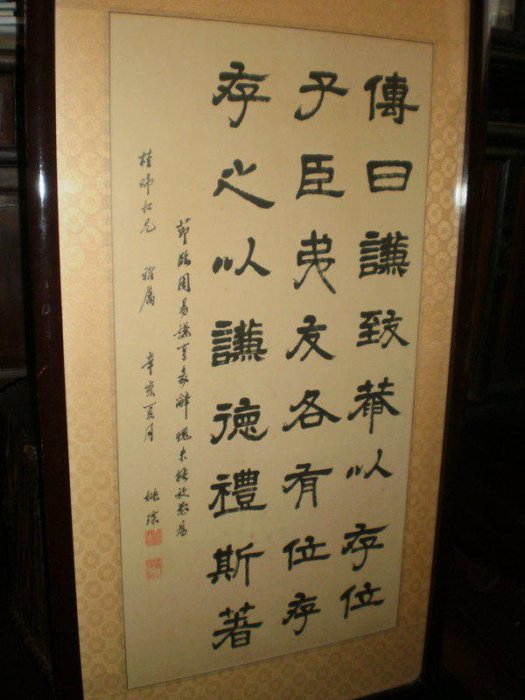 傳曰謙致恭以存位
子臣弟友各有位存
存之以謙德禮斯著
周易謙亨彖辭愧未能
仁兄 雅屬 辛亥夏月 姚琮